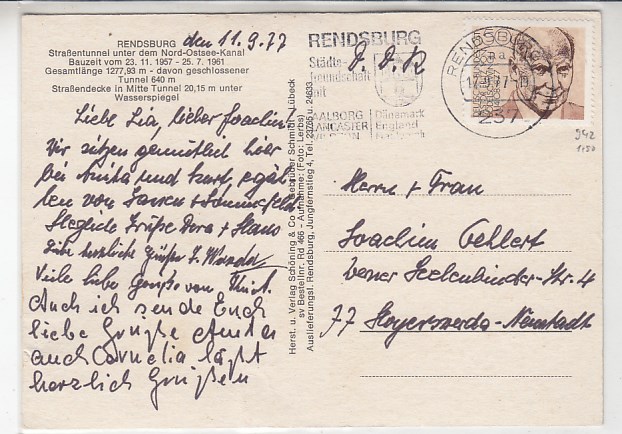 RENDSBURG
Straßentunnel unter dem Nord-Ostsee-Kanal
Bauzeit vom 23. 11. 1957 - 25. 7. 1961
Gesamtlänge 1277,93 m - davon geschlossener
Tunnel 640 m
Straßendecke in Mitte Tunnel 20,15 m unter
Wasserspiegel
den 11.9.77
Liebe Lia, lieber Joachim!
Wir sitzen gemütlich hier
bei Anita und Kurt, erzäh-
len von
Herzliche Grüße Dora + Hans
Liebe herzliche Grüße
Viele liebe Grüße von
Auch ich sende Euch
liebe Grüße Anita
auch Cornelia läßt
herzlich Grüßen
Herst. u. Verlag Schöning & Co + Gebrüder Schmidt, Lübeck
sv Bestellnr. Rd 466 - Aufnahme: (Foto: Lerbs)
Auslieferungsl. Rendsburg, Jungfernstieg 4, Tel.
RENDSBURG
Städte-
freundschaft
mit
AALBORG Dänemark
LANCASTER England
D.D.R
RENDSBURG
237
942
1150
Herrn + Frau
Joachim Oehlert
Seelenbinder-Str. 4
77 Hoyerswerda-Neustadt